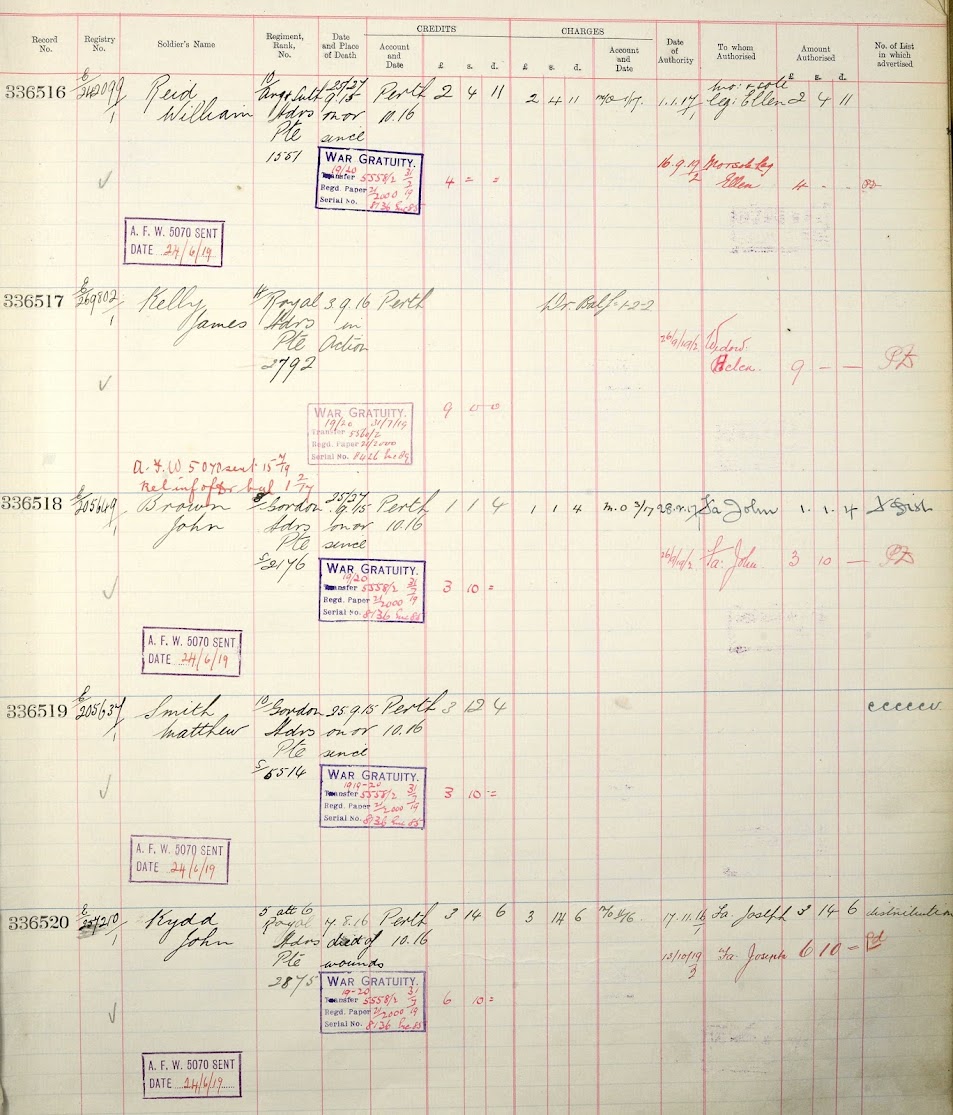 CREDITS CHARGES
Record No. Registry No. Soldier's Name Regiment, Rank, No. Date and Place of Death Account and Date £ s. d. £ s. d. Account and Date Date of Authority To whom Authorised Amount Authorised £ s. d. No. of List in which advertised
336516 E/242099/1 Reid 10/ Arg & Suth 25/27 Perth 2 4 11 2 4 11 1.1.17 leg: Ellen 2 4 11
William Hdrs 9.15 on or 10.16
Pte since
1551
WAR GRATUITY.
19/20 Transfer 5558/2 31/7/19
Regd. Paper 21/2000
Serial No. 8136
4 = =
16.9.19 Mo & sole leg
Ellen 4 - -
A. F. W. 5070 SENT
DATE 24/6/19
336517 E/269802/1 Kelly Royal 3.9.16 Perth Dr. Balce 1-2-2
James Hdrs in
Pte Action
2792
26/9/19/2 Widow
Helen. 9 - - PD
WAR GRATUITY.
19/20 31/7/19
Transfer 5560/2
Regd. Paper 21/2000
Serial No. 8426
9 0 0
A.F.W 5070 sent 15
336518 E/205649/1 Brown Gordon 25/27 Perth 1 1 4 1 1 4 m.o 3/17 Fa John 1. 1. 4
John Hdrs 9.15 on or 10.16
Pte since
S/2176
26/9/19/2 Fa: John. 3 10 - PD
WAR GRATUITY.
19/20 Transfer 5558/2 31/7/19
Regd. Paper 21/2000
Serial No. 8136
3 10 =
A. F. W. 5070 SENT
DATE 24/6/19
336519 E/205637/1 Smith 10/ Gordon 25.9.15 Perth 3 12 4
Matthew Hdrs on or 10.16
Pte since
S/5514
WAR GRATUITY.
1919-20 Transfer 5558/2 31/7/19
Regd. Paper 21/2000
Serial No. 8136
3 10 =
A. F. W. 5070 SENT
DATE 24/6/19
336520 E/257210/1 Kydd 5 att 6 Royal 7.8.16 Perth 3 14 6 3 14 6 17.11.16 Fa Joseph 3 14 6 distribution
John Hdrs died of 10.16
Pte wounds
2875
13/10/19 Fa: Joseph 6 10 -
WAR GRATUITY.
19-20 Transfer 5558/2 31/7/19
Regd. Paper 21/2000
Serial No. 8136
6 10 =
A. F. W. 5070 SENT
DATE 24/6/19